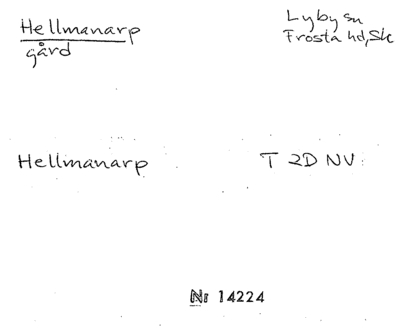 Hellmanarp
gård
Lyby sn
Frosta hd, Sk
Hellmanarp
T 2D NV
Nr 14224